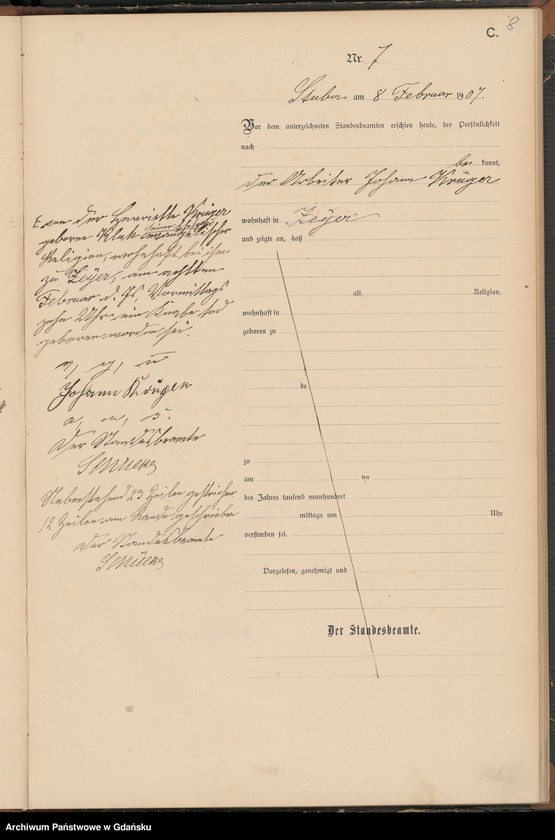 C. 8
Nr. 7
Stuba am 8 Februar 1907.
Vor dem unterzeichneten Standesbeamten erschien heute, der Persönlichkeit
nach
be kannt,
der Arbeiter Johann Krüger
wohnhaft in Zeyer
und zeigte an, daß
von der Henriette Krüger
geborene Klatt seiner Ehefrau
evangelischer
Religion, wohnhaft bei ihm
zu Zeyer, am achten
Februar d. Js. Vormittags
zehn Uhr ein Knabe tod
geboren worden sei.
v., g., u.
Johann Krüger
a, u, s.
Der Standesbeamte
Nebenstehend 23 Zeilen gestrichen
12 Zeilen am Rande geschrieben
Der Standesbeamte
alt, Religion,
wohnhaft in
geboren zu
de
zu
am ten
des Jahres tausend neunhundert
mittags um Uhr
verstorben sei.
Vorgelesen, genehmigt und
Der Standesbeamte.
Archiwum Państwowe w Gdańsku